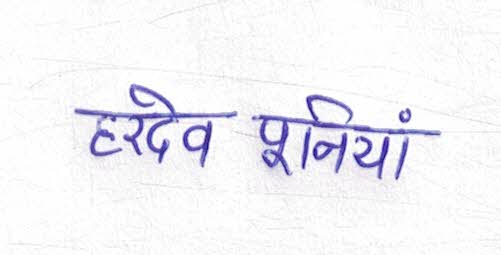 हरदेव पूनियां